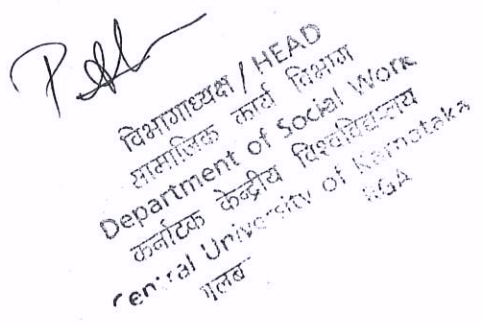 विभागाध्यक्ष / HEAD
सामाजिक कार्य विभाग
Department of Social Work
कर्नाटक केन्द्रीय विश्वविद्यालय
Central University of Karnataka